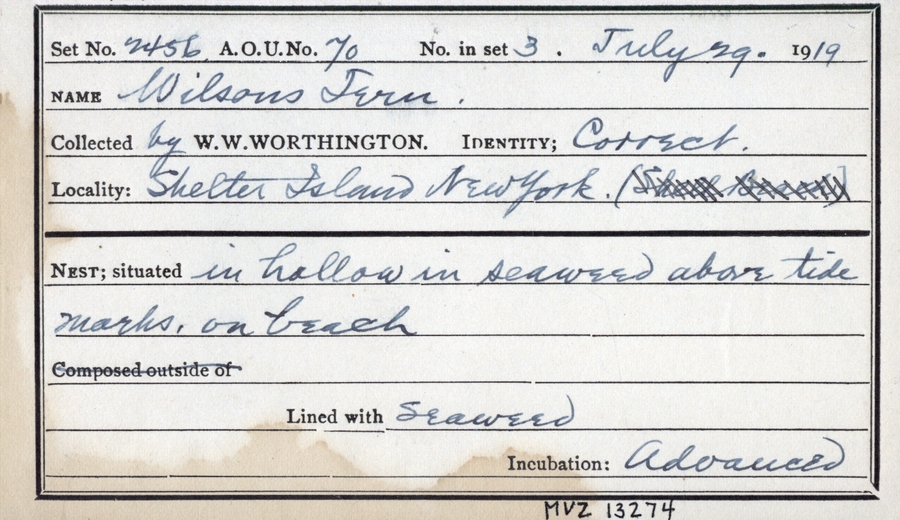 Set No. 2456 A.O.U.No. 70 No. in set 3 . July 29. 1919
NAME Wilsons Tern .
Collected by W.W.WORTHINGTON. IDENTITY; Correct.
Locality: Shelter Island New York. (
NEST; situated in hollow in seaweed above tide
marks, on beach
Composed outside of
Lined with Seaweed
Incubation: Advanced
MVZ 13274